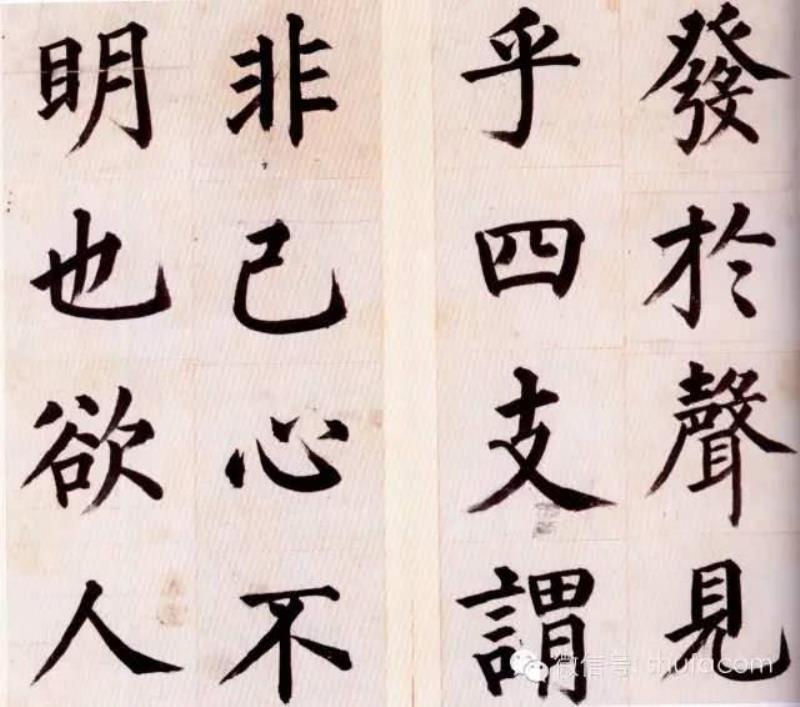 發於聲見
乎四支謂
非己心不
明也欲人
微信号: shufacom